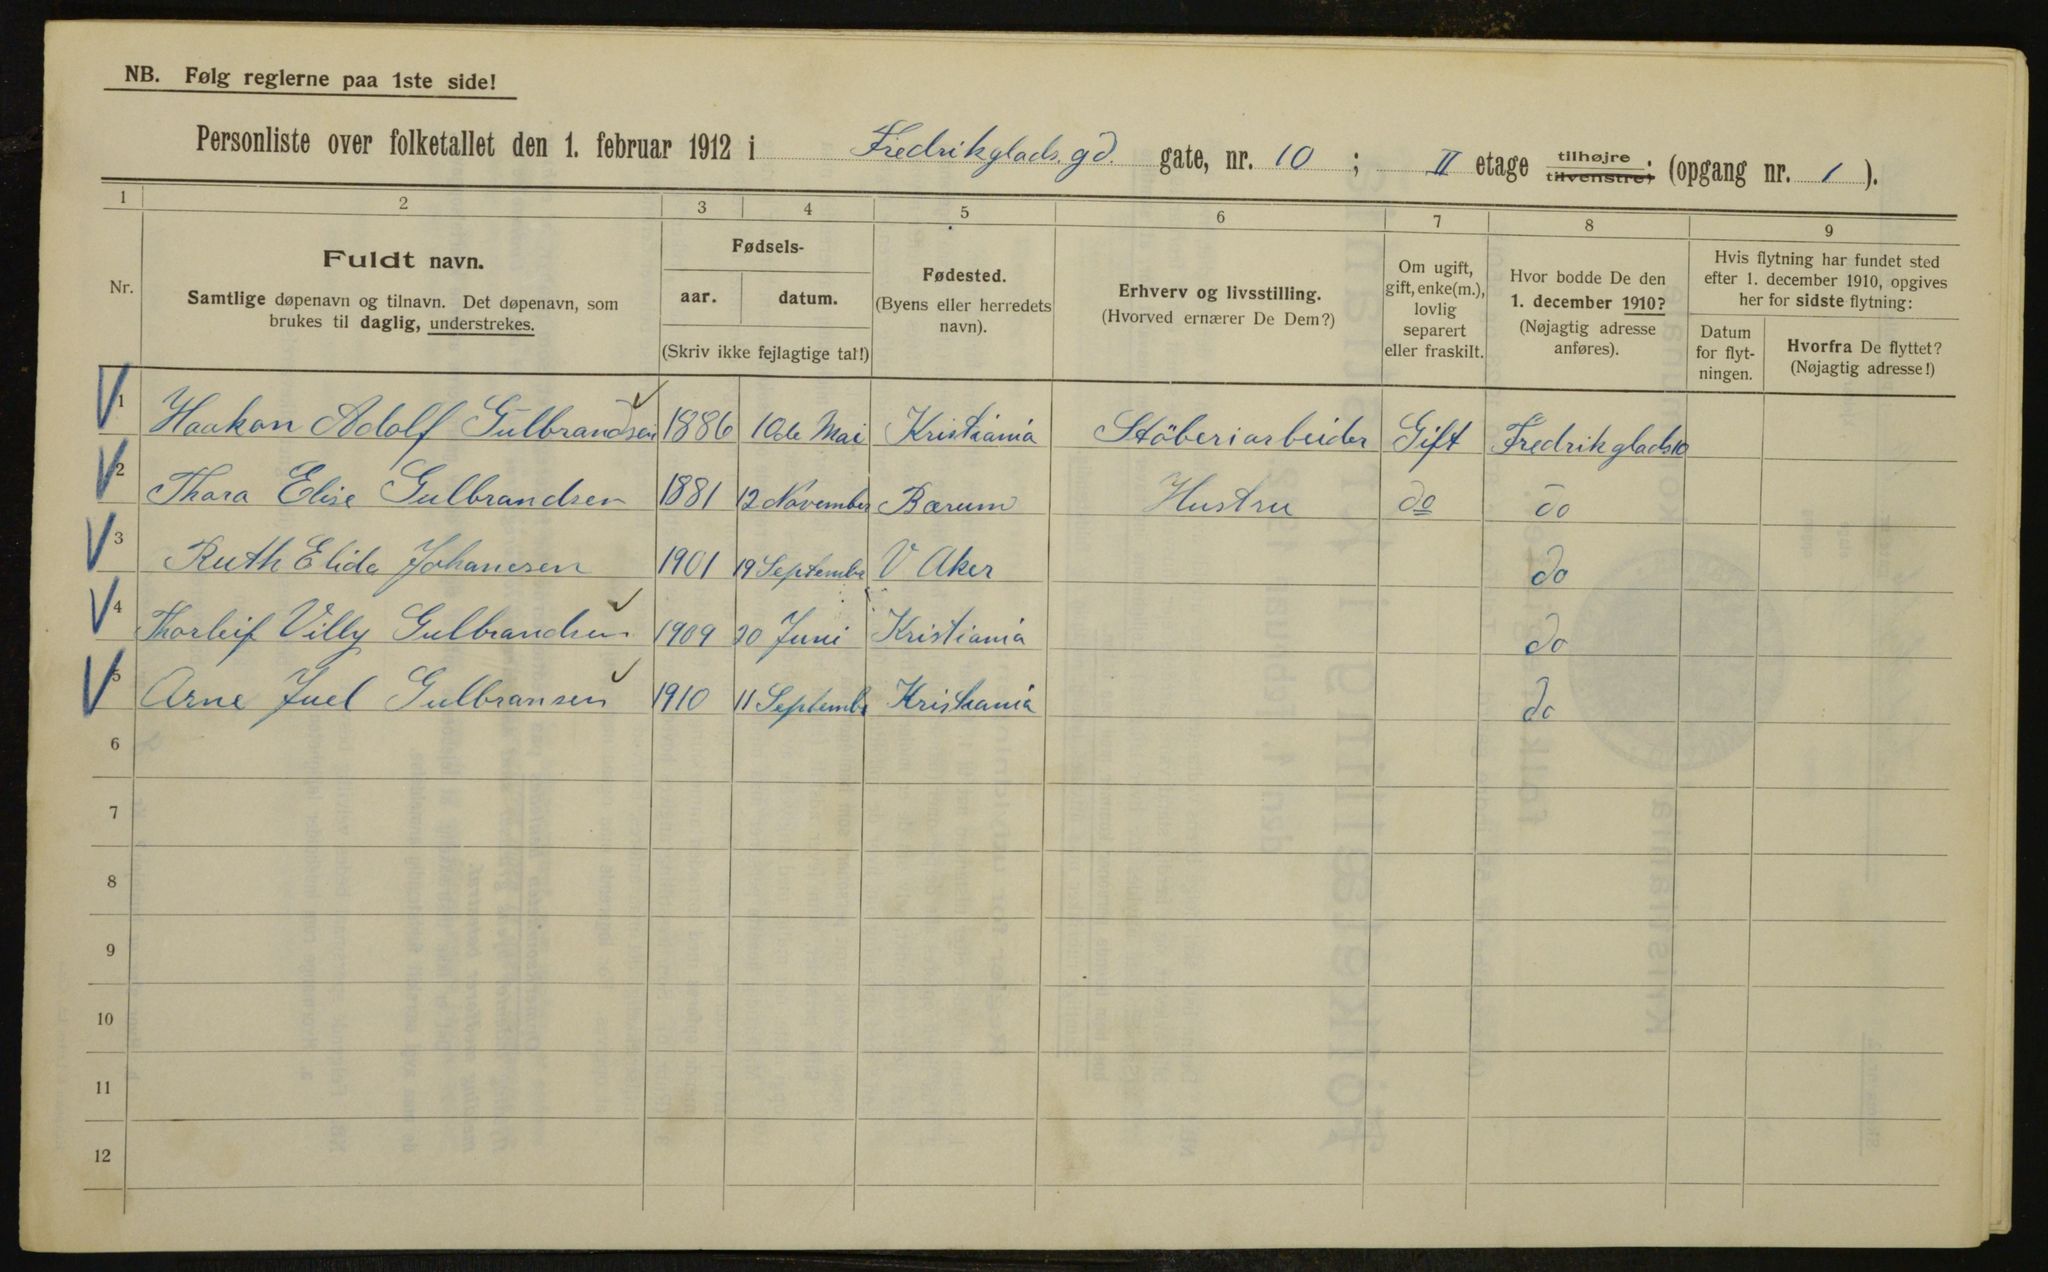 NB. Følg reglerne paa 1ste side!
Personliste over folketallet den 1. februar 1912 i Fredrikglads.gd. gate, nr. 10 ; II etage tilhøjre tilvenstre) (opgang nr. 1 ).
1 2 3 4 5 6 7 8 9
Nr.
Fuldt navn.
Samtlige døpenavn og tilnavn. Det døpenavn, som
brukes til daglig, understrekes.
Fødsels-
aar. datum.
(Skriv ikke fejlagtige tal!)
Fødested.
(Byens eller herredets
navn).
Erhverv og livsstilling.
(Hvorved ernærer De Dem?)
Om ugift,
gift, enke(m.),
lovlig
separert
eller fraskilt.
Hvor bodde De den
1. december 1910?
(Nøjagtig adresse
anføres).
Hvis flytning har fundet sted
efter 1. december 1910, opgives
her for sidste flytning:
Datum
for flyt-
ningen.
Hvorfra De flyttet?
(Nøjagtig adresse!)
1 Haakon Adolf Gulbrandsen 1886 10de Mai Kristiania Stöberiarbeider Gift Fredrikglads 10
2 Thora Elise Gulbrandsen 1881 12 November Bærum Hustru do do
3 Ruth Elida Johanesen 1901 19 Septembr V Aker do
4 Thorleif Villy Gulbrandsen 1909 20 Juni Kristiania do
5 Arne Juel Gulbransen 1910 11 Septembr Kristiania do
6
7
8
9
10
11
12